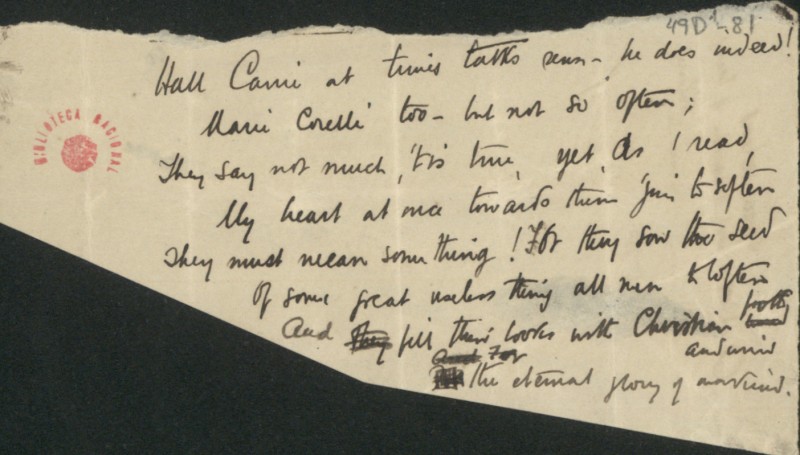 49D1-81
Hall Caine at times talks sense – he does indeed!
Marie Corelli too – but not so often;
They say not much, 'tis true, yet, as I read,
My heart at once towards them 'gins to soften
They must mean something! For they sow the seed
Of some great useless thing all men to soften
And they fill their books with Christian
and wind
And For
the eternal glory of mankind.
BIBLIOTECA NACIONAL